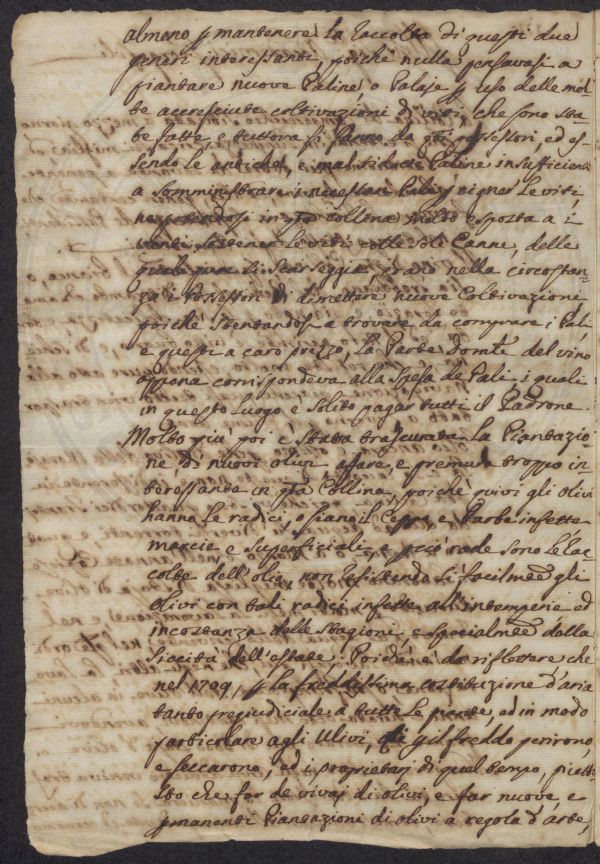 almeno p mantenere la raccolta di questi due
generi interessanti, poichè nulla pensavasi a
piantare nuove Paline, o Palaje p uso delle mol
te accresciute coltivazioni di viti, che sono sta
te fatte e tuttora si fanno da qti possessori, ed es
sendo le antiche, e mal tidotte Paline insufficienti
a somministrare i necessari Pali p regner le viti,
ne potendosi in qta collina molto esposta a i
venti sostener le viti colle sole Canne, delle
quale pure si scarseggia, erano nella circostan
za i Possessori di dimettere nuove Coltivazioni
poichè stentandosi a trovare da comprare i Pali
e questi a caro prezzo, la Parte Domle del vino
appena corrispondeva alla spesa de Pali, i quali
in questo luogo è solito pagar tutti il Padrone.
Molto più poi è stata trascurata la Piantazio
ne di nuovi olivi, affare, e premura troppo in
teressante in qta Collina, poichè quivi gli olivi
hanno le radici, o siano il Ceppo, e Barbe infette
marcie e superficiali, e pciò rade sono le rac
colte dell'olio, non resistendo sì facilmte gli
olivi con tali radici infette all'intemperie ed
incostanza delle stagioni e specialmte dalla
siccità dell'estate. Poichè è da riflettere che
nel 1709, p la freddissima costituzione d'aria
tanto pregiudiciale a tutte le piante, ed in modo
particolare agli Ulivi, p il freddo perirono,
e seccarono, ed i proprietari di quel tempo, piutto
sto che far de vivaj di olivi, e far nuove, e
pmanenti Piantazioni di olivi a regola d'arte,